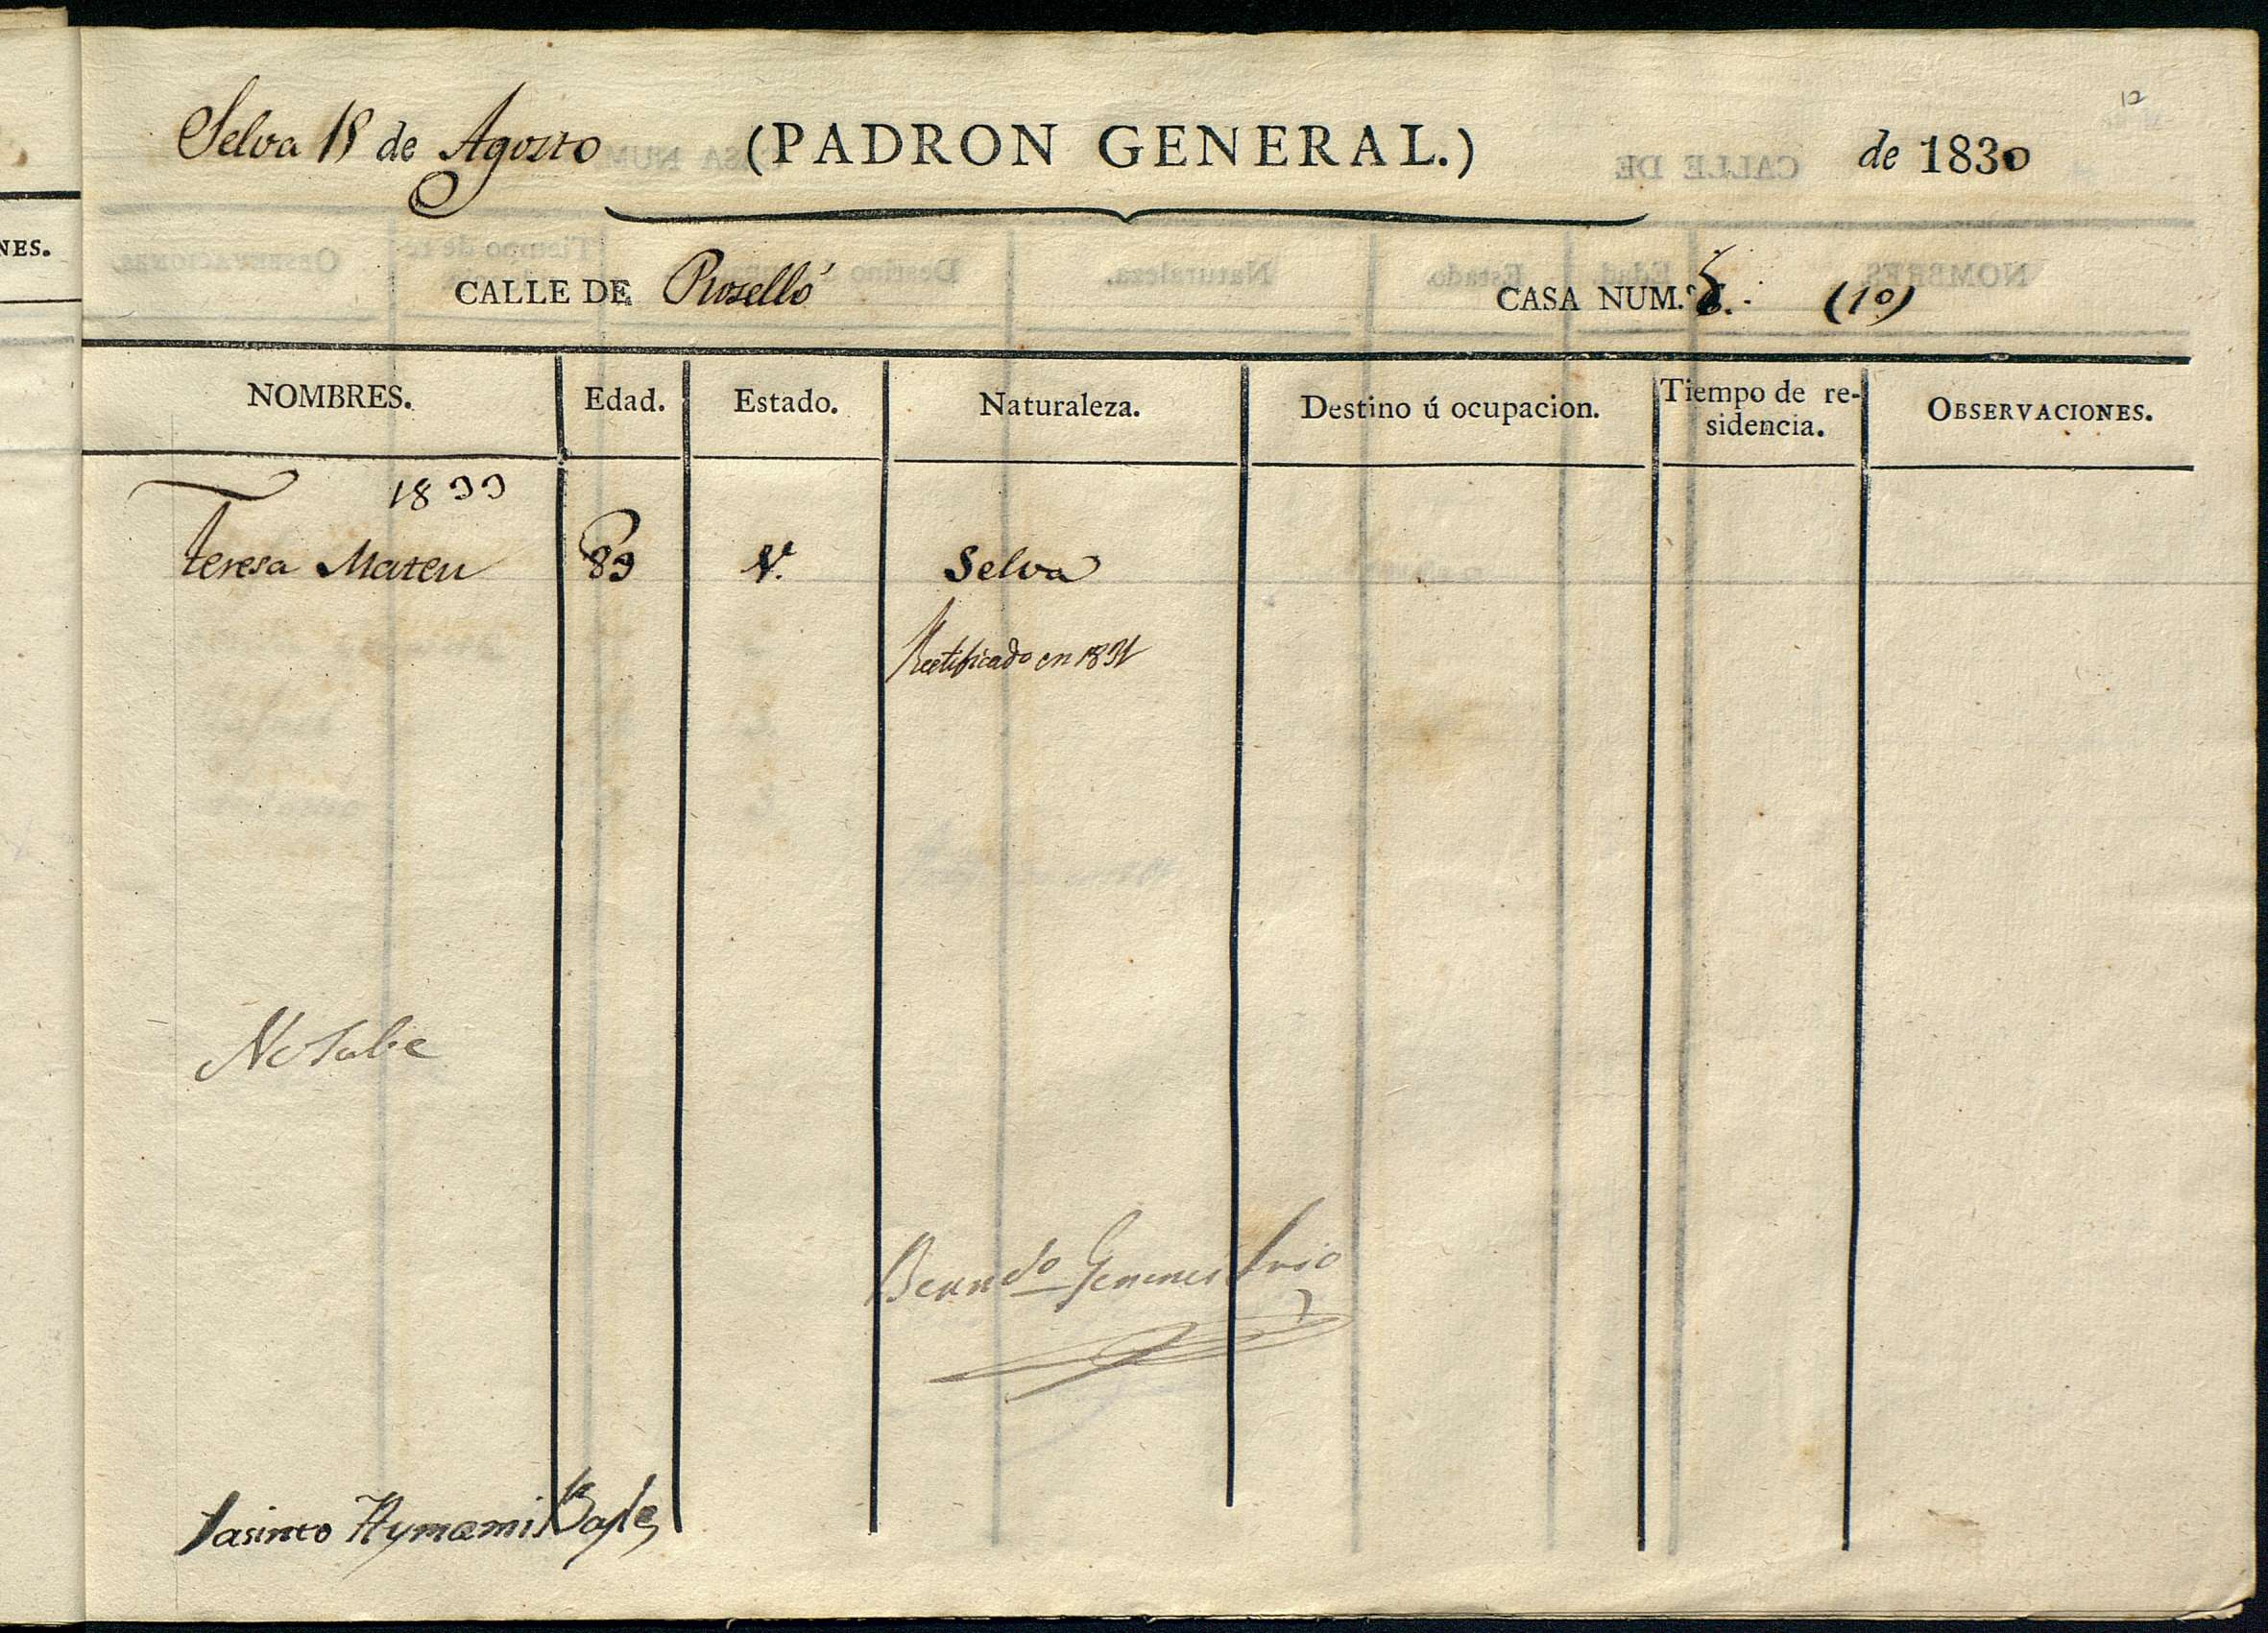 NES.
12
Selva 18 de Agosto (PADRON GENERAL.) de 1830
CALLE DE Roselló CASA NUM.º (10)
NOMBRES. Edad. Estado. Naturaleza. Destino ú ocupacion. Tiempo de re-
sidencia. OBSERVACIONES.
1833
Teresa Mateu 83 V.ª Selva
Rectificado en 1831
No Sabe
Bernᵈᵒ Genenes Srio
Jasinto Aymamí Bayle